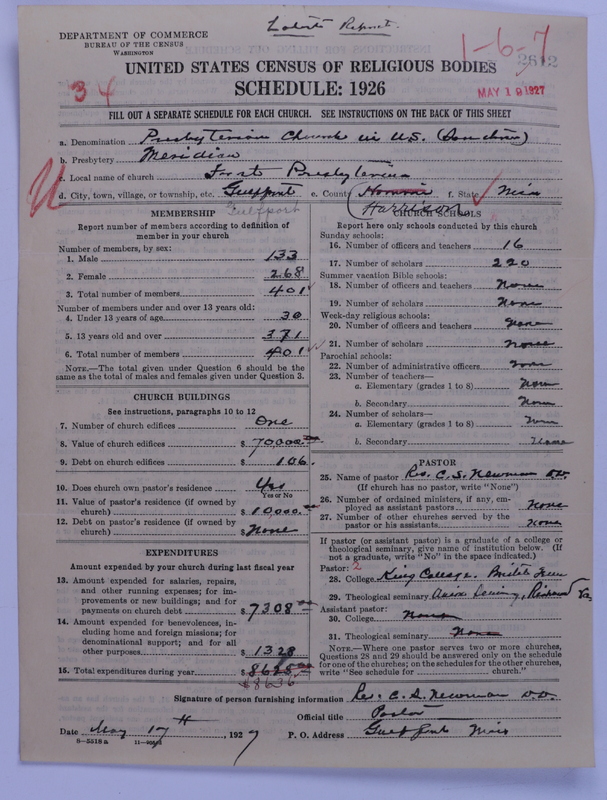 DEPARTMENT OF COMMERCE
BUREAU OF THE CENSUS
WASHINGTON
Report
1-6-7
2612
UNITED STATES CENSUS OF RELIGIOUS BODIES
34
SCHEDULE: 1926
MAY 19 1927
FILL OUT A SEPARATE SCHEDULE FOR EACH CHURCH. SEE INSTRUCTIONS ON THE BACK OF THIS SHEET
a. Denomination Presbyterian Church in U.S. (Southern)
b. Presbytery Meridian
c. Local name of church First Presbyterian
d. City, town, village, or township, etc. Gulfport e. County Harrison f. State Miss
Gulfport
MEMBERSHIP
Report number of members according to definition of
member in your church
Number of members, by sex:
1. Male 133
2. Female 268
3. Total number of members 401
Number of members under and over 13 years old:
4. Under 13 years of age 30
5. 13 years old and over 371
6. Total number of members 401
NOTE.—The total given under Question 6 should be the
same as the total of males and females given under Question 3.
CHURCH BUILDINGS
See instructions, paragraphs 10 to 12
7. Number of church edifices One
8. Value of church edifices $ 70,000.00
9. Debt on church edifices $ 106.
10. Does church own pastor's residence? Yes
Yes or No
11. Value of pastor's residence (if owned by
church) $ 10,000.00
12. Debt on pastor's residence (if owned by
church) $ None
EXPENDITURES
Amount expended by your church during last fiscal year
13. Amount expended for salaries, repairs,
and other running expenses; for im-
provements or new buildings; and for
payments on church debt $ 7308.00
14. Amount expended for benevolences, in-
cluding home and foreign missions; for
denominational support; and for all
other purposes $ 1328
15. Total expenditures during year $
$8636
CHURCH SCHOOLS
Report here only schools conducted by this church
Sunday schools:
16. Number of officers and teachers 16
17. Number of scholars 220
Summer vacation Bible schools:
18. Number of officers and teachers None
19. Number of scholars None
Week-day religious schools:
20. Number of officers and teachers None
21. Number of scholars None
Parochial schools:
22. Number of administrative officers None
23. Number of teachers—
a. Elementary (grades 1 to 8) None
b. Secondary None
24. Number of scholars—
a. Elementary (grades 1 to 8) None
b. Secondary None
PASTOR
25. Name of pastor Rev. C. S. Newman D.D.
(If church has no pastor, write "None")
26. Number of ordained ministers, if any, em-
ployed as assistant pastors None
27. Number of other churches served by the
pastor or his assistants None
If pastor (or assistant pastor) is a graduate of a college or
theological seminary, give name of institution below. (If
not a graduate, write "No" in the space indicated.)
Pastor: 2
28. College King College, Bristol Tenn
29. Theological seminary Union Seminary, Richmond Va.
Assistant pastor:
30. College None
31. Theological seminary None
NOTE.—Where one pastor serves two or more churches,
Questions 28 and 29 should be answered only on the schedule
for one of the churches; on the schedules for the other churches,
write "See schedule for church."
Signature of person furnishing information Rev. C. S. Newman D.D.
Official title Pastor
Date May 17th, 1927 P. O. Address Gulfport Miss
8-5518 a